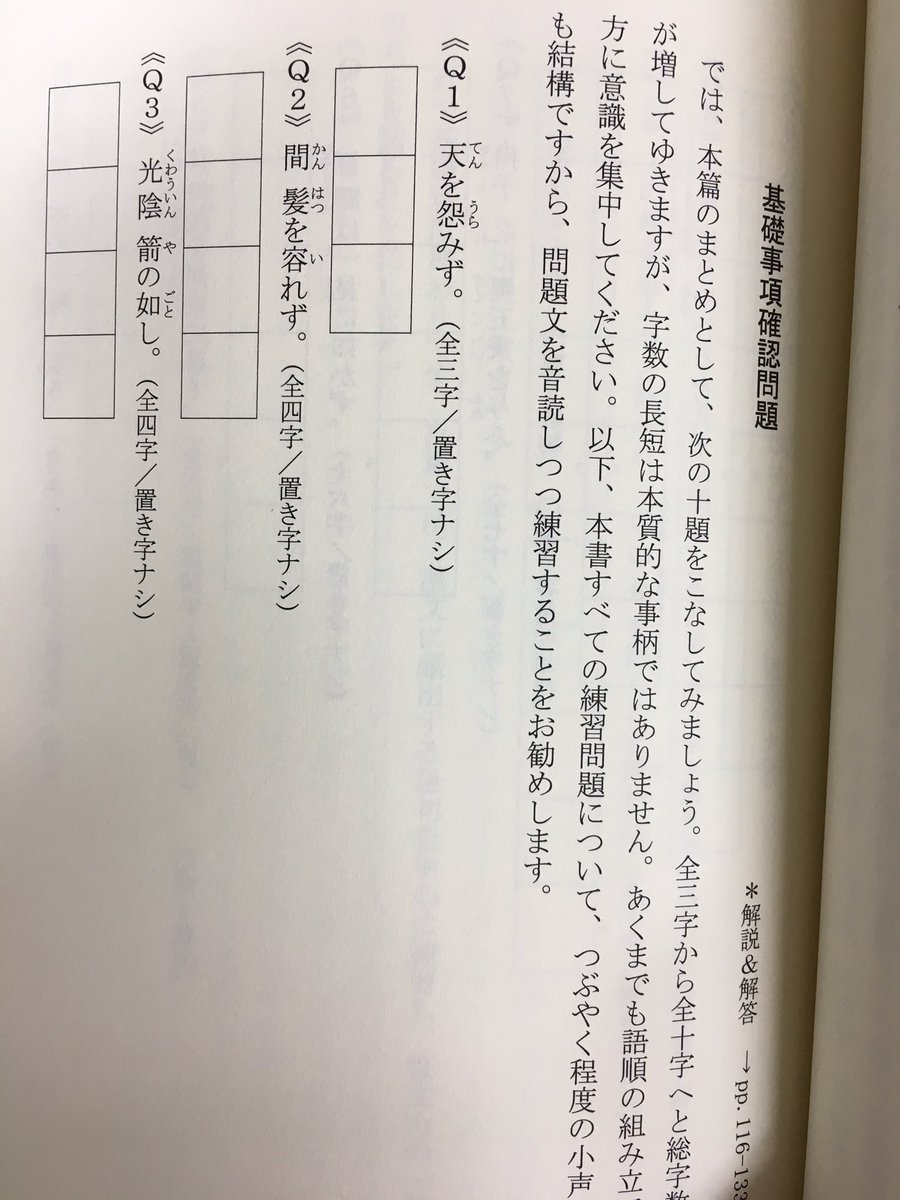 基礎事項確認問題
＊解説&解答 →pp. 116–133
では、本篇のまとめとして、次の十題をこなしてみましょう。全三字から全十字へと総字数
が増してゆきますが、字数の長短は本質的な事柄ではありません。あくまでも語順の組み立て
方に意識を集中してください。以下、本書すべての練習問題について、つぶやく程度の小声
も結構ですから、問題文を音読しつつ練習することをお勧めします。
《Q1》 天てんを怨うらみず。（全三字／置き字ナシ）
《Q2》 間かん 髪はつを容いれず。（全四字／置き字ナシ）
《Q3》 光陰くわういん 箭やの如ごとし。（全四字／置き字ナシ）